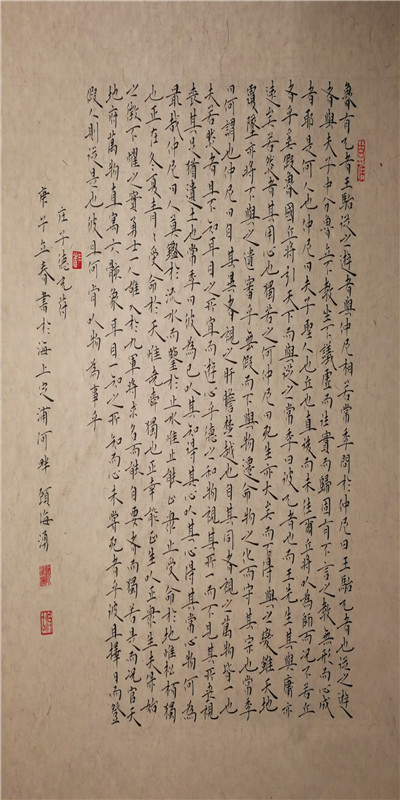 魯有兀者王駘從之遊者與仲尼相若常季問於仲尼曰王駘兀者也從之遊
者與夫子中分魯立不教坐不議虛而往實而歸固有不言之教無形而心成
者耶是何人也仲尼曰夫子聖人也丘也直後而未往爾丘將以為師而況不若丘
者乎奚假魯國丘將引天下而與從之常季曰彼兀者也而王先生其與庸亦
遠矣若然者其用心也獨若之何仲尼曰死生亦大矣而不得與之變雖天地
覆墜亦將不與之遺審乎無假而不與物遷命物之化而守其宗也常季
曰何謂也仲尼曰自其異者視之肝膽楚越也自其同者視之萬物皆一也
夫若然者且不知耳目之所宜而遊心乎德之和物視其所一而不見其所喪視
喪其足猶遺土也常季曰彼為己以其知得其心以其心得其常心物何為
最哉仲尼曰人莫鑑於流水而鑑於止水惟止能止衆止受命於地惟松柏獨
也正在冬夏青青受命於天惟堯舜獨也正幸能正生以正衆生夫保始
之徵不懼之實勇士一人雄入於九軍將求名而能自要者而猶若是而況官天
地府萬物直寓六骸象耳目一知之所知而心未嘗死者乎彼且擇日而登
假人則從是也彼且何肯以物為事乎
庄子德充符
庚子立春書於海上定浦河畔顾海濤